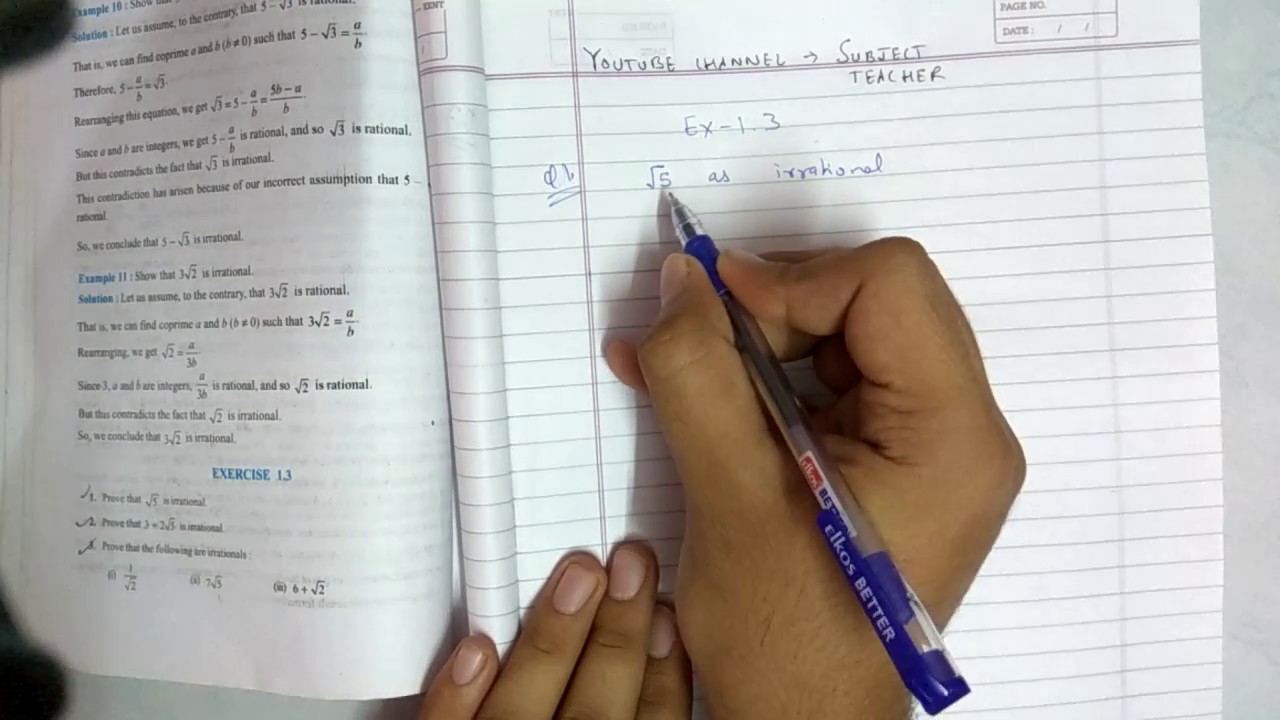 Example 10 : Show
Solution : Let us assume, to the contrary, that 5 – √3 is rational.
That is, we can find coprime a and b (b ≠ 0) such that 5 – √3 = a/b
Therefore, 5 – a/b = √3.
Rearranging this equation, we get √3 = 5 – a/b = 5b – a/b.
Since a and b are integers, we get 5 – a/b is rational, and so √3 is rational.
But this contradicts the fact that √3 is irrational.
This contradiction has arisen because of our incorrect assumption that 5 –
rational.
So, we conclude that 5 – √3 is irrational.
Example 11 : Show that 3√2 is irrational.
Solution : Let us assume, to the contrary, that 3√2 is rational.
That is, we can find coprime a and b (b ≠ 0) such that 3√2 = a/b.
Rearranging, we get √2 = a/3b
Since 3, a and b are integers, a/3b is rational, and so √2 is rational.
But this contradicts the fact that √2 is irrational.
So, we conclude that 3√2 is irrational.
EXERCISE 1.3
1. Prove that √5 is irrational.
2. Prove that 3 + 2√5 is irrational.
3. Prove that the following are irrationals :
(i) 1/√2 (ii) 7√5 (iii) 6 + √2
PAGE NO.
DATE : / /
YOUTUBE CHANNEL → SUBJECT
TEACHER
Ex-1.3
Q1. √5 as irrational
elkos BETTER
elkos BE